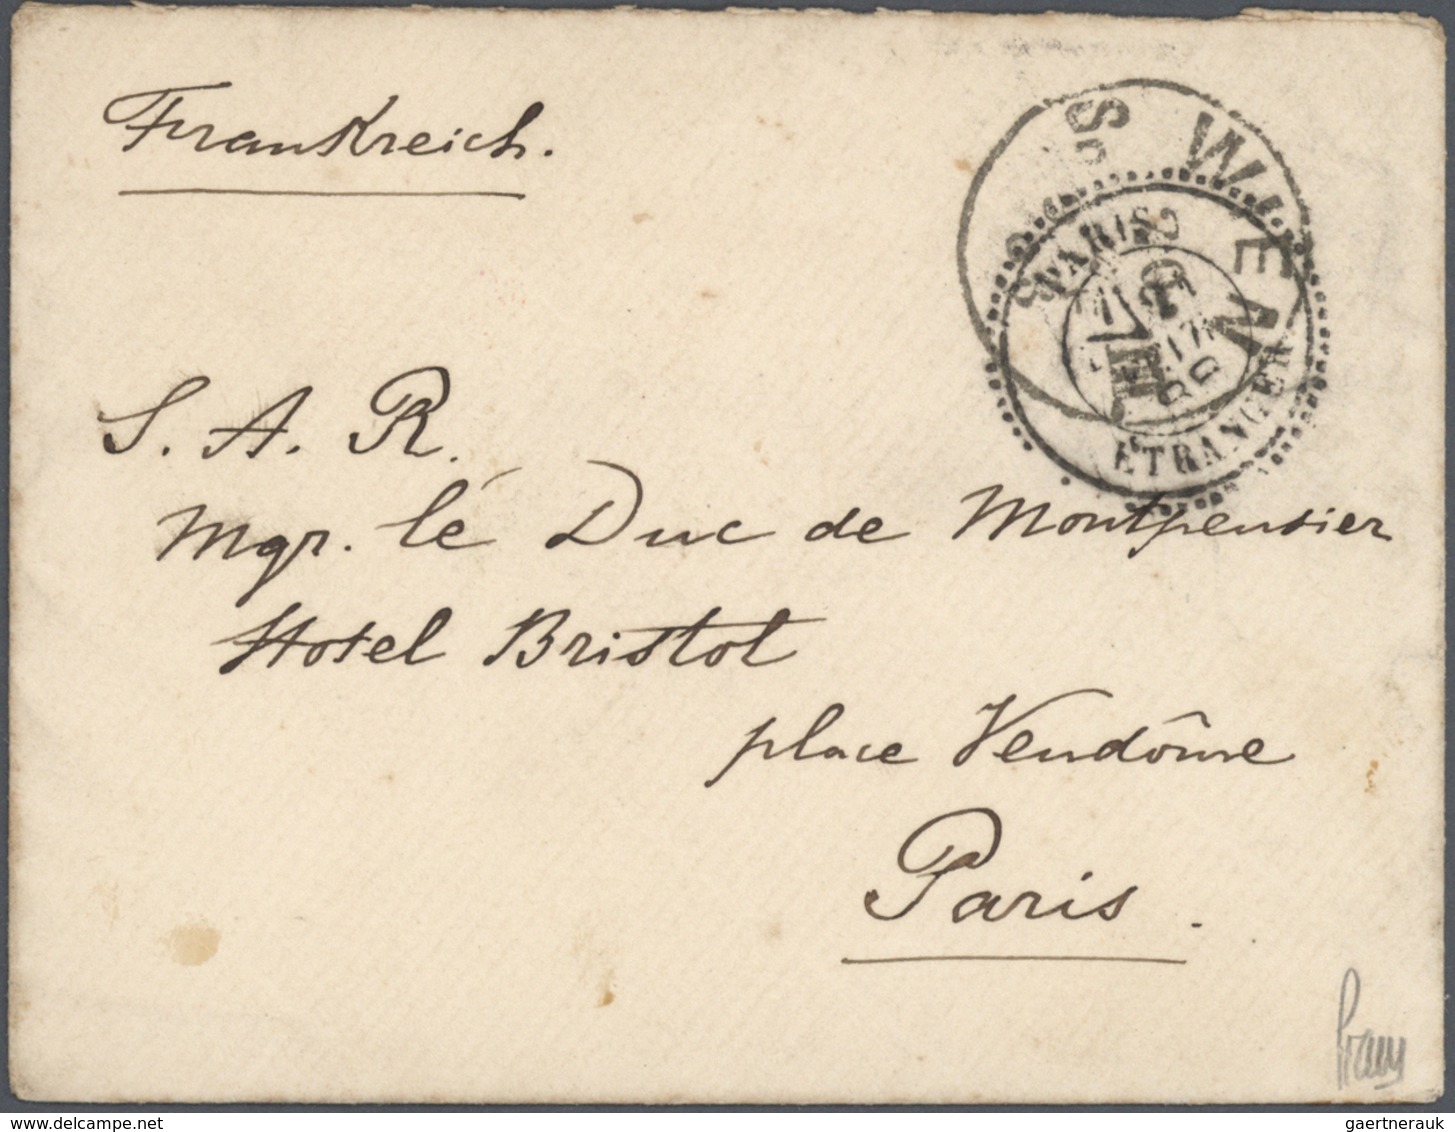 Frankreich.
WIEN
PARIS
ETRANGER
S. A. R.
Mgr. lé Duc de Montpensier
Hotel Bristol
place Vendôme
Paris.
gaertnerauk @ delcampe.net